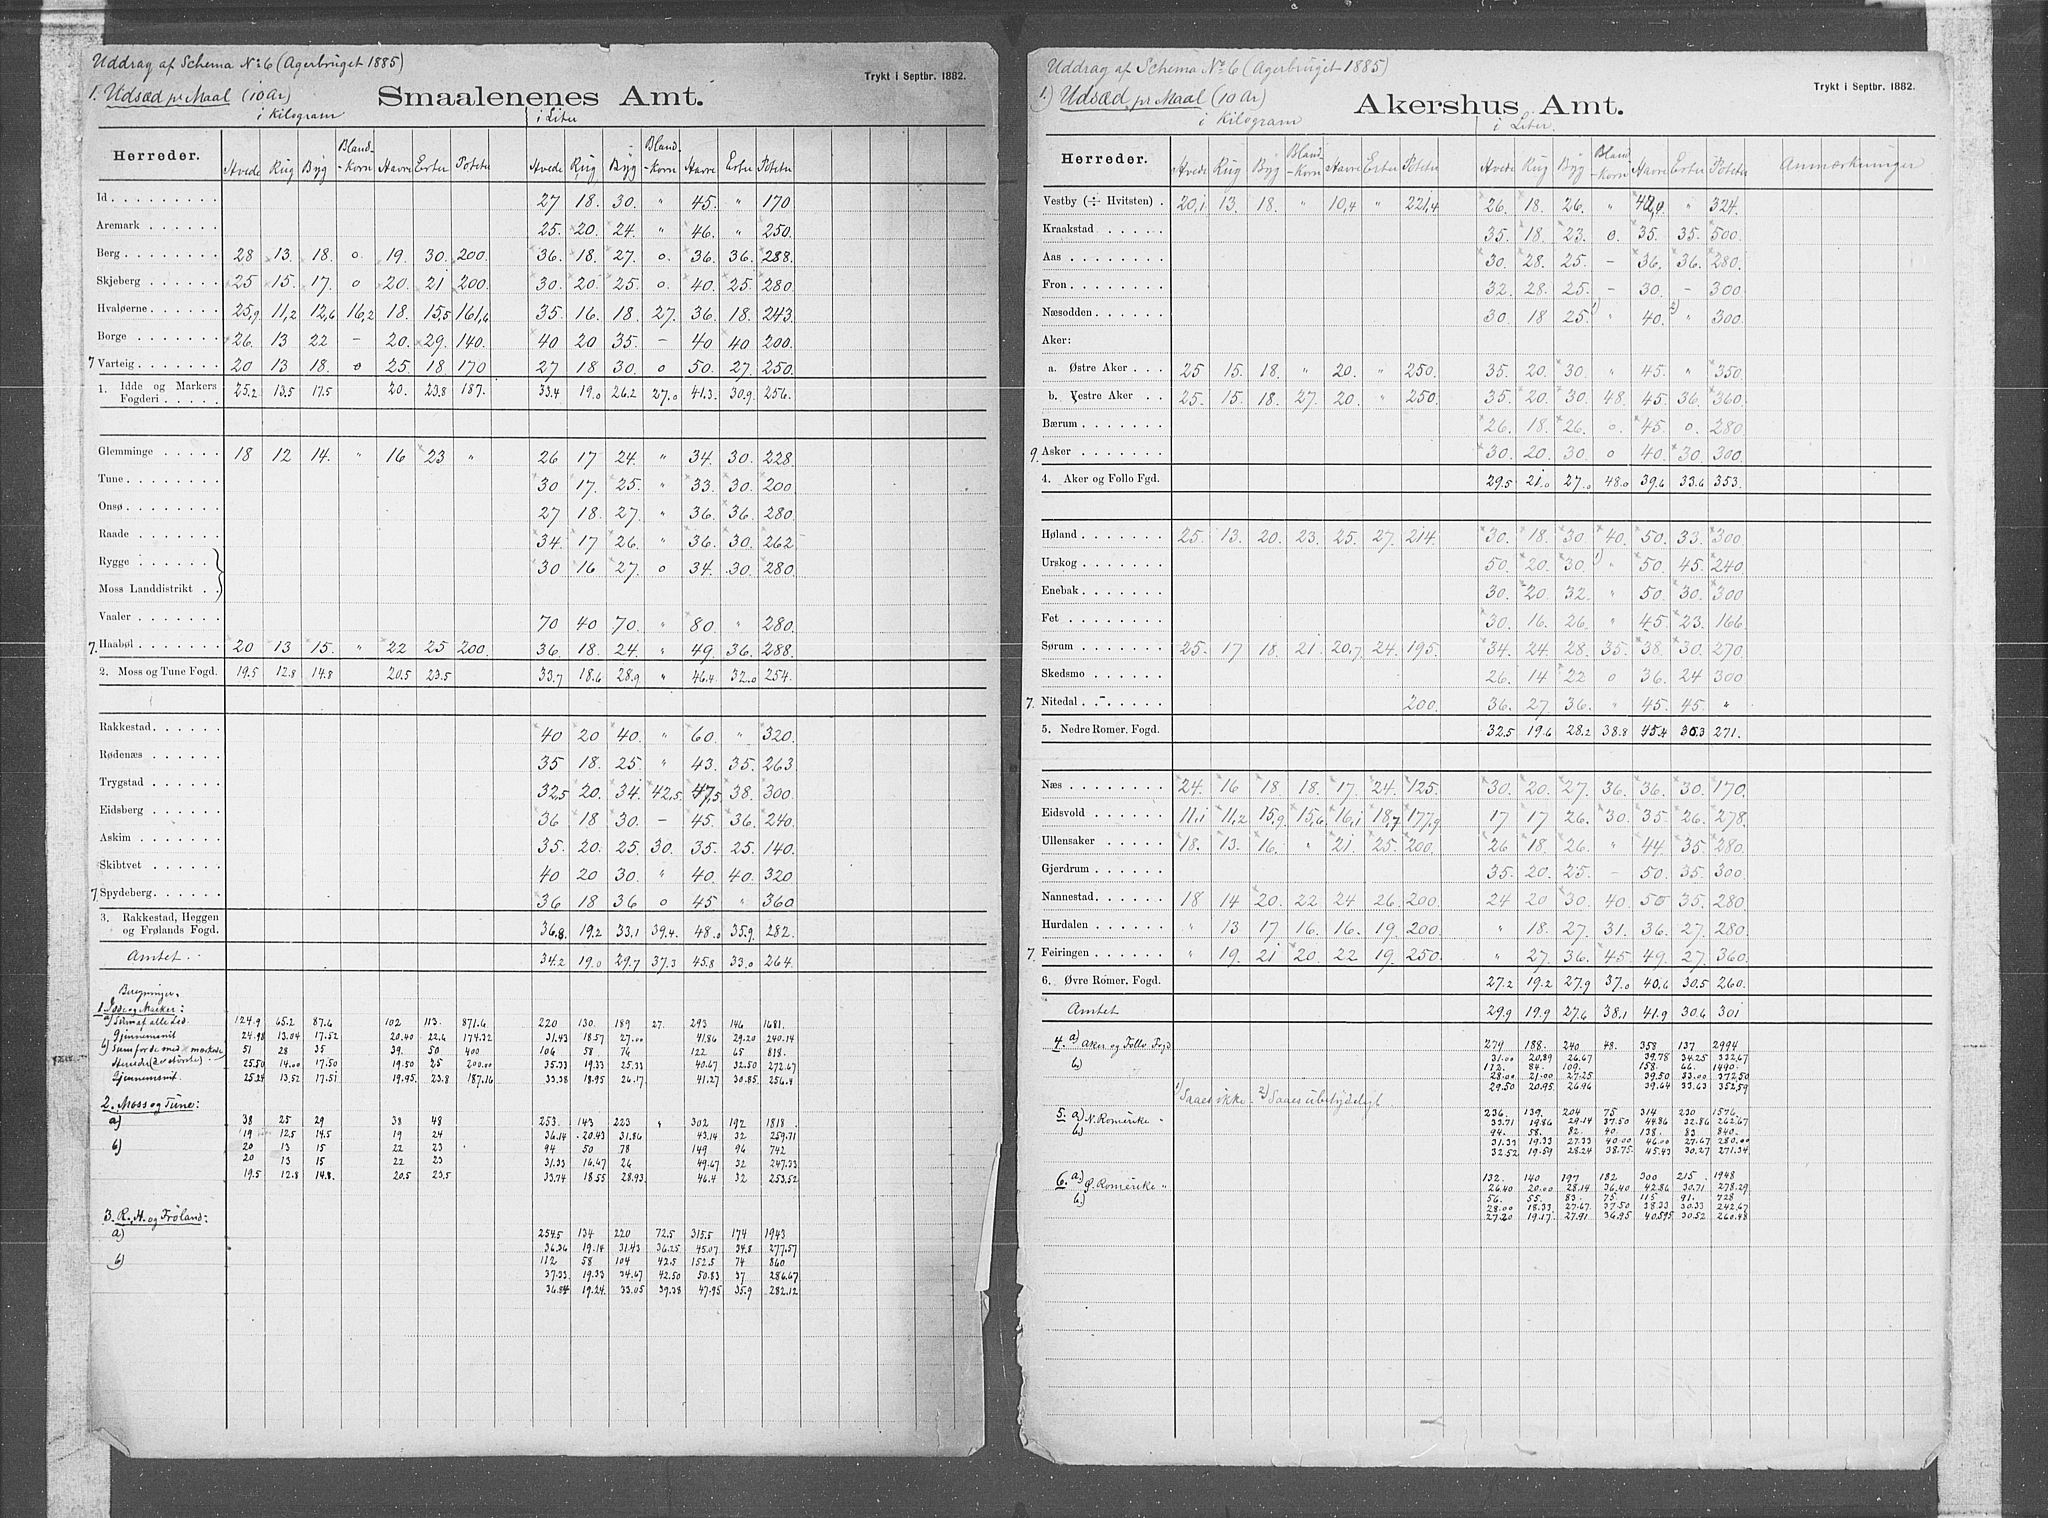 Uddrag af Schema No 6 (Agerbruget 1885)
Trykt i Septbr. 1882.
1. Udsæd pr Maal (10 Ar)
Smaalenenes Amt.
i Kilogram i Liter
Herreder. Hvede Rug Byg Bland-korn Havre Erter Poteter Hvede Rug Byg Bland-korn Havre Erter Poteter
Id 27 18. 30. " 45. " 170
Aremark 25. 20. 24. " 46. " 250.
Berg 28 13. 18. 0 19. 30. 200. 36. 18. 27. 0. 36. 36. 288.
Skjeberg 25 15. 17. 0 20. 21 200. 30. 20. 25. 0. 40. 25. 280
Hvaløerne 25,9 11,2 12,6 16,2 18. 15,5 161,6 35. 16. 18. 27. 36. 18. 243.
Borge 26. 13 22 – 20. 29. 140. 40 20 35. – 40 40 200.
7 Varteig 20 13 18. 0 25. 18 170 27 18 30. 0 50. 27. 250.
1. Idde og Markers Fogderi 25.2 13.5 17.5 20. 23.8 187. 33.4 19.0 26.2 27.0 41.3. 30.9. 256.
Glemminge 18 12 14. " 16 23 " 26 17 24. " 34. 30. 228
Tune 30 17. 25. " 33. 30. 200
Onsø 27 18. 27. " 36. 36. 280.
Raade 34. 17 26. " 36. 30. 262
Rygge 30 16 27. 0 34. 30. 280
Moss Landdistrikt
Vaaler 70 40 70. " 80 " 280.
7. Haabøl 20 13 15. " 22 25 200. 36. 18. 24. " 49. 36. 288.
2. Moss og Tune Fogd. 19.5 12.8 14.8 20.5 23.5 33.7 18.6 28.9 " 46.4. 32.0 254.
Rakkestad 40 20 40. " 60. " 320.
Rødenæs 35 18. 25. " 43. 35. 263
Trygstad 32,5 20. 34. 42,5. 47,5 38. 300.
Eidsberg 36 18 30. – 45. 36. 240.
Askim 35. 20. 25. 30. 35. 25. 140.
Skibtvet 40 20 30. " 40. 40. 320
7 Spydeberg 36 18 36 0 45 " 360
3. Rakkestad, Heggen og Frølands Fogd. 36.8. 19.2 33.1 39.4. 48.0 35.9. 282.
Amtet 34.2 19.0 29.7 37.3 45.8 33.0 264.
Beregninger.
1. Idde og Marker:
a) Sum af alle Led. 124.9 65.2 87.6 102 113. 871.6 220 130. 189 27. 293 146 1681.
Gjennemsnit 24.98 13.04 17.52 20.40 22.6 174.32 31.43 18.57 27.00 41.86 29.20 240.14
b) Sum for de med × mærkede 51 28 35 39. 50 400 106 58 76 122 65 818.
Herreder (de største). 25.50 14.00 17.50 19.50 25 200.00 35.33 19.33 25.33 40.67 32.50 272.67
Gjennemsnit 25.24 13.52 17.51 19.95 23.8 187.16 33.38 18.95 26.17 41.27 30.85 256.4
2. Moss og Tune:
a) 38 25 29 38 48 253. 143 223 " 302 192 1818
19 12.5 14.5 19 24 36.14 20.43 31.86 43.14 32 259.71
b) 20 13 15 22 23 94 50 78 149 96 742
20 13 15 22 23 31.33 16.67 26 49.67 32 247.33
19.5 12.8 14.8. 20.5 23.5 33.74 18.55 28.93 46.4 32 253.52
3. R., H. og Frøland:
a) 254.5 134 220 72.5 315.5 174 1943
36.36 19.14 31.43 36.25 45.07 34.8 277.57
b) 112 58 104 42.5 152.5 74 860
37.33 19.33 34.67 42.50 50.83 37 286.67
36.84 19.24 33.05 39.38 47.95 35.9 282.12
Uddrag af Schema No 6 (Agerbruget 1885)
Trykt i Septbr. 1882.
1.) Udsæd pr Maal (10 Ar)
Akershus Amt.
i Kilogram i Liter
Herreder. Hvede Rug Byg Bland-korn Havre Erter Poteter Hvede Rug Byg Bland-korn Havre Erter Poteter Anmærkninger
Vestby (÷ Hvitsten) 20,1 13. 18. " 10,4 " 221,4 26. 18. 26. " 42,0 " 324.
Kraakstad 35. 18. 23. 0. 35. 35. 500.
Aas 30. 28. 25. – 36. 36. 280.
Fron 32. 28. 25. – 30. – 300
Næsodden 30. 18 25. 1) " 40. 2) " 300.
Aker:
a. Østre Aker 25 15. 18. " 20. " 250. 35. 20. 30. " 45. " 350.
b. Vestre Aker 25. 15. 18. 27. 20. " 250. 35. 20. 30. 48. 45. 36. 360.
Bærum 26. 18. 26. 0. 45. 0. 280
9. Asker 30. 20. 30. 0 40. 30 300.
4. Aker og Follo Fgd. 29.5 21.0 27.0 48.0 39.6 33.6 353.
Høland 25. 13. 20. 23. 25. 27. 214. 30. 18. 30. 40. 50. 33. 300
Urskog 50. 20. 30. 1) " 50. 45. 240
Enebak 30. 20. 32. " 50. 30. 300
Fet 30. 16. 26. " 45. 23. 166
Sørum 25. 17 18. 21 20,7 24. 195. 34. 24 28. 35. 38. 30. 270.
Skedsmo 26. 14 22 0 36. 24 300
7. Nitedal 200. 36. 27. 36. " 45. 45. "
5. Nedre Romer. Fogd. 32.5 19.6 28.2 38.8 45.4 30.3 271.
Næs 24. 16 18 18. 17 24. 125. 30. 20. 27. 36. 36. 30. 170.
Eidsvold 11,1 11,2 15,9 15,6 16,1 18,7 177,9 17 17 26. 30. 35 26. 278
Ullensaker 18. 13. 16. " 21. 25. 200. 26 18. 26. " 44. 35. 280
Gjerdrum 35. 20. 25. – 50. 35. 300.
Nannestad 18 14 20. 22 24 26 200. 24 20 30. 40. 50 35. 280
Hurdalen " 13 17 16. 16. 19. 200. " 18. 27. 31. 36. 27. 280.
7. Feiringen " 19. 21 20. 22 19. 250. " 27. 36. 45. 49. 27. 360.
6. Øvre Romer. Fogd. 27.2 19.2 27.9 37.0 40.6 30.5 260.
Amtet 29.9 19.9 27.6 38.1 41.9 30.6 301
4. a) Aker og Follo Fogd 279 188. 240 48. 358 137 2994
31.00 20.89 26.67 39.78 34.25 332.67
b) 112. 84. 109. 158. 66. 1490.
28.00 21.00 27.25 39.50 33.00 372.50
29.50 20.95 26.96 39.64 33.63 352.59
1) Saaes ikke. – 2) Saaes ubetydeligt.
5. a) N. Romerike " 236. 139. 204 75 314 230 1576
33.71 19.86 29.14 37.50 44.86 32.86 262.67
b) 94. 58. 82. 40. 138. 83 840.
31.33 19.33 27.33 40.00 46.00 27.67 280.00
32.52 19.59 28.24 38.75 45.43 30.27 271.34
6. a) Ø. Romerike " 132. 140 197 182 300 215 1948
26.40 20.00 28.14 36.40 42.86 30.71 278.29
b) 56. 55. 83. 75 115 91. 728
28.00 18.33 27.67 37.50 38.33 30.33 242.67
27.20 19.17 27.91 36.95 40.595 30.52 260.48